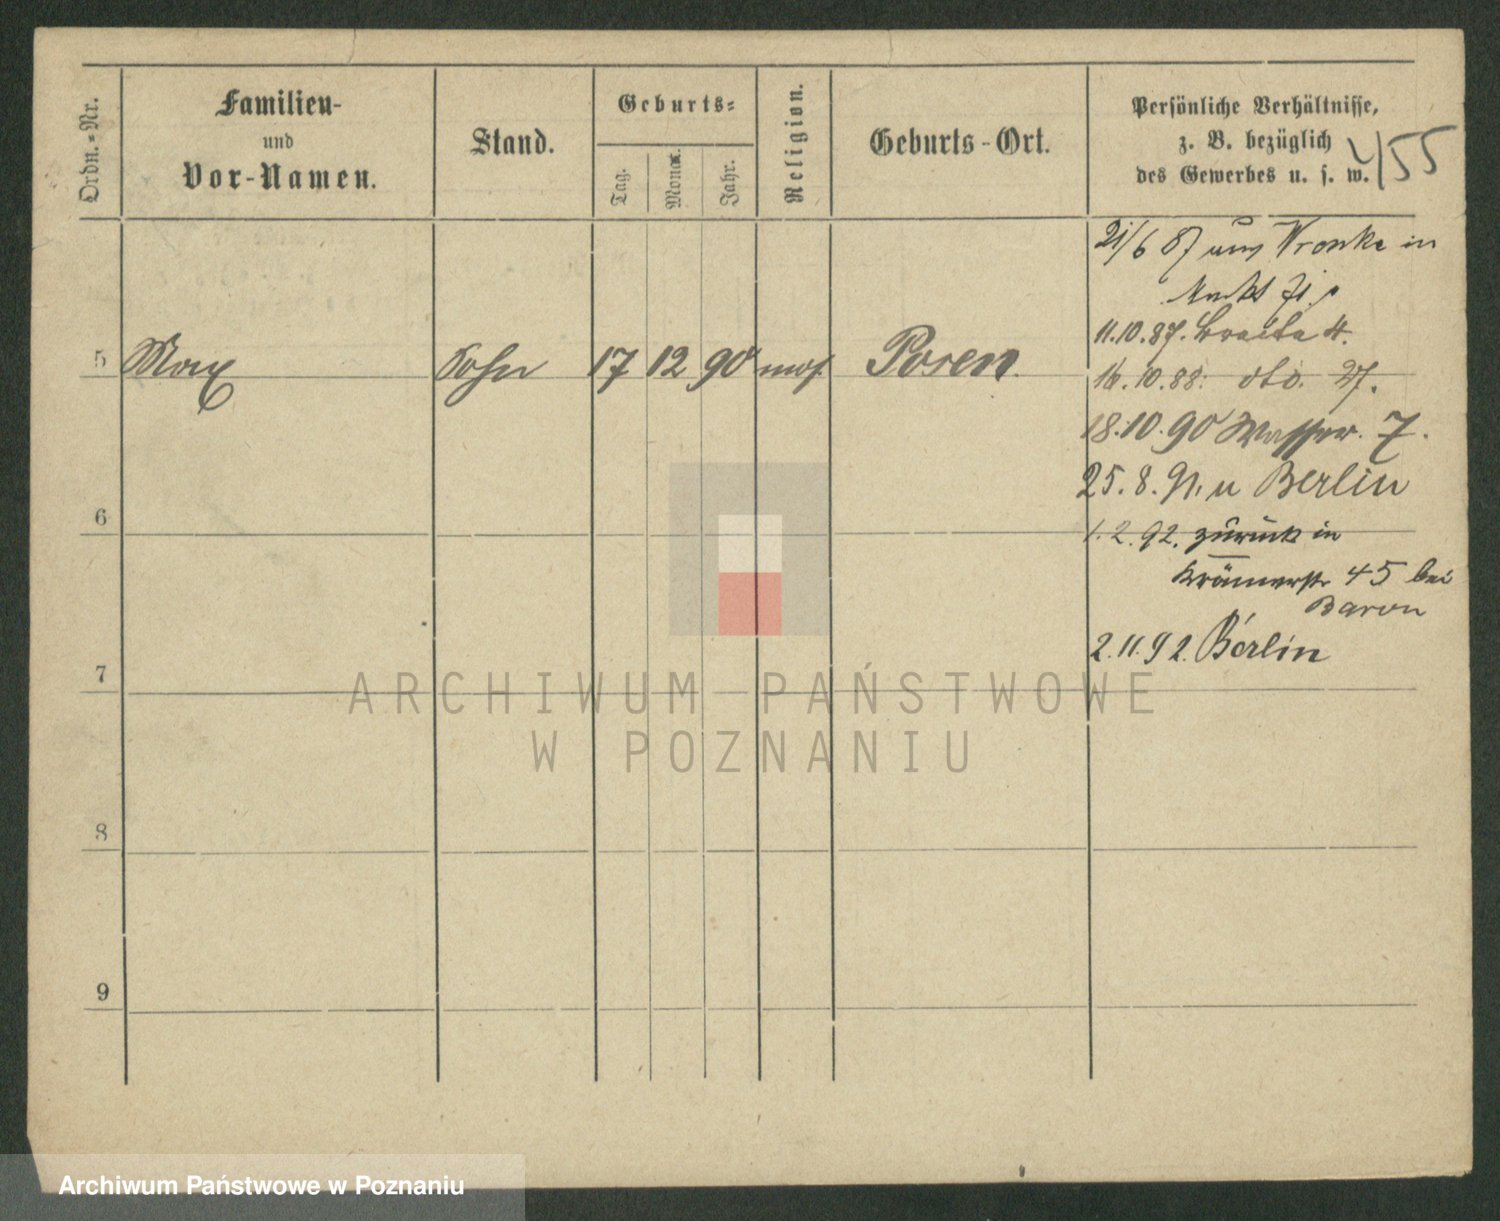 Ordn.-Nr.
Familien-
und
Vor-Namen.
Stand.
Geburts-
Tag.
Monat.
Jahr.
Religion.
Geburts-Ort.
Persönliche Verhältnisse,
z. B. bezüglich
des Gewerbes u. s. w.
455
21/6 87 aus Wronke in
Markt
11.10.87. Breite 4.
5 Max Sohn 17 12 90 mos. Posen
16.10.88. dto. 27.
18.10.90 Wasser. 7.
25.8.91. n Berlin
6
1.2.92. zurück in
Krämerstr 45 bei
Baron
2.11.92. Berlin
7
8
9
ARCHIWUM PAŃSTWOWE
W POZNANIU
Archiwum Państwowe w Poznaniu